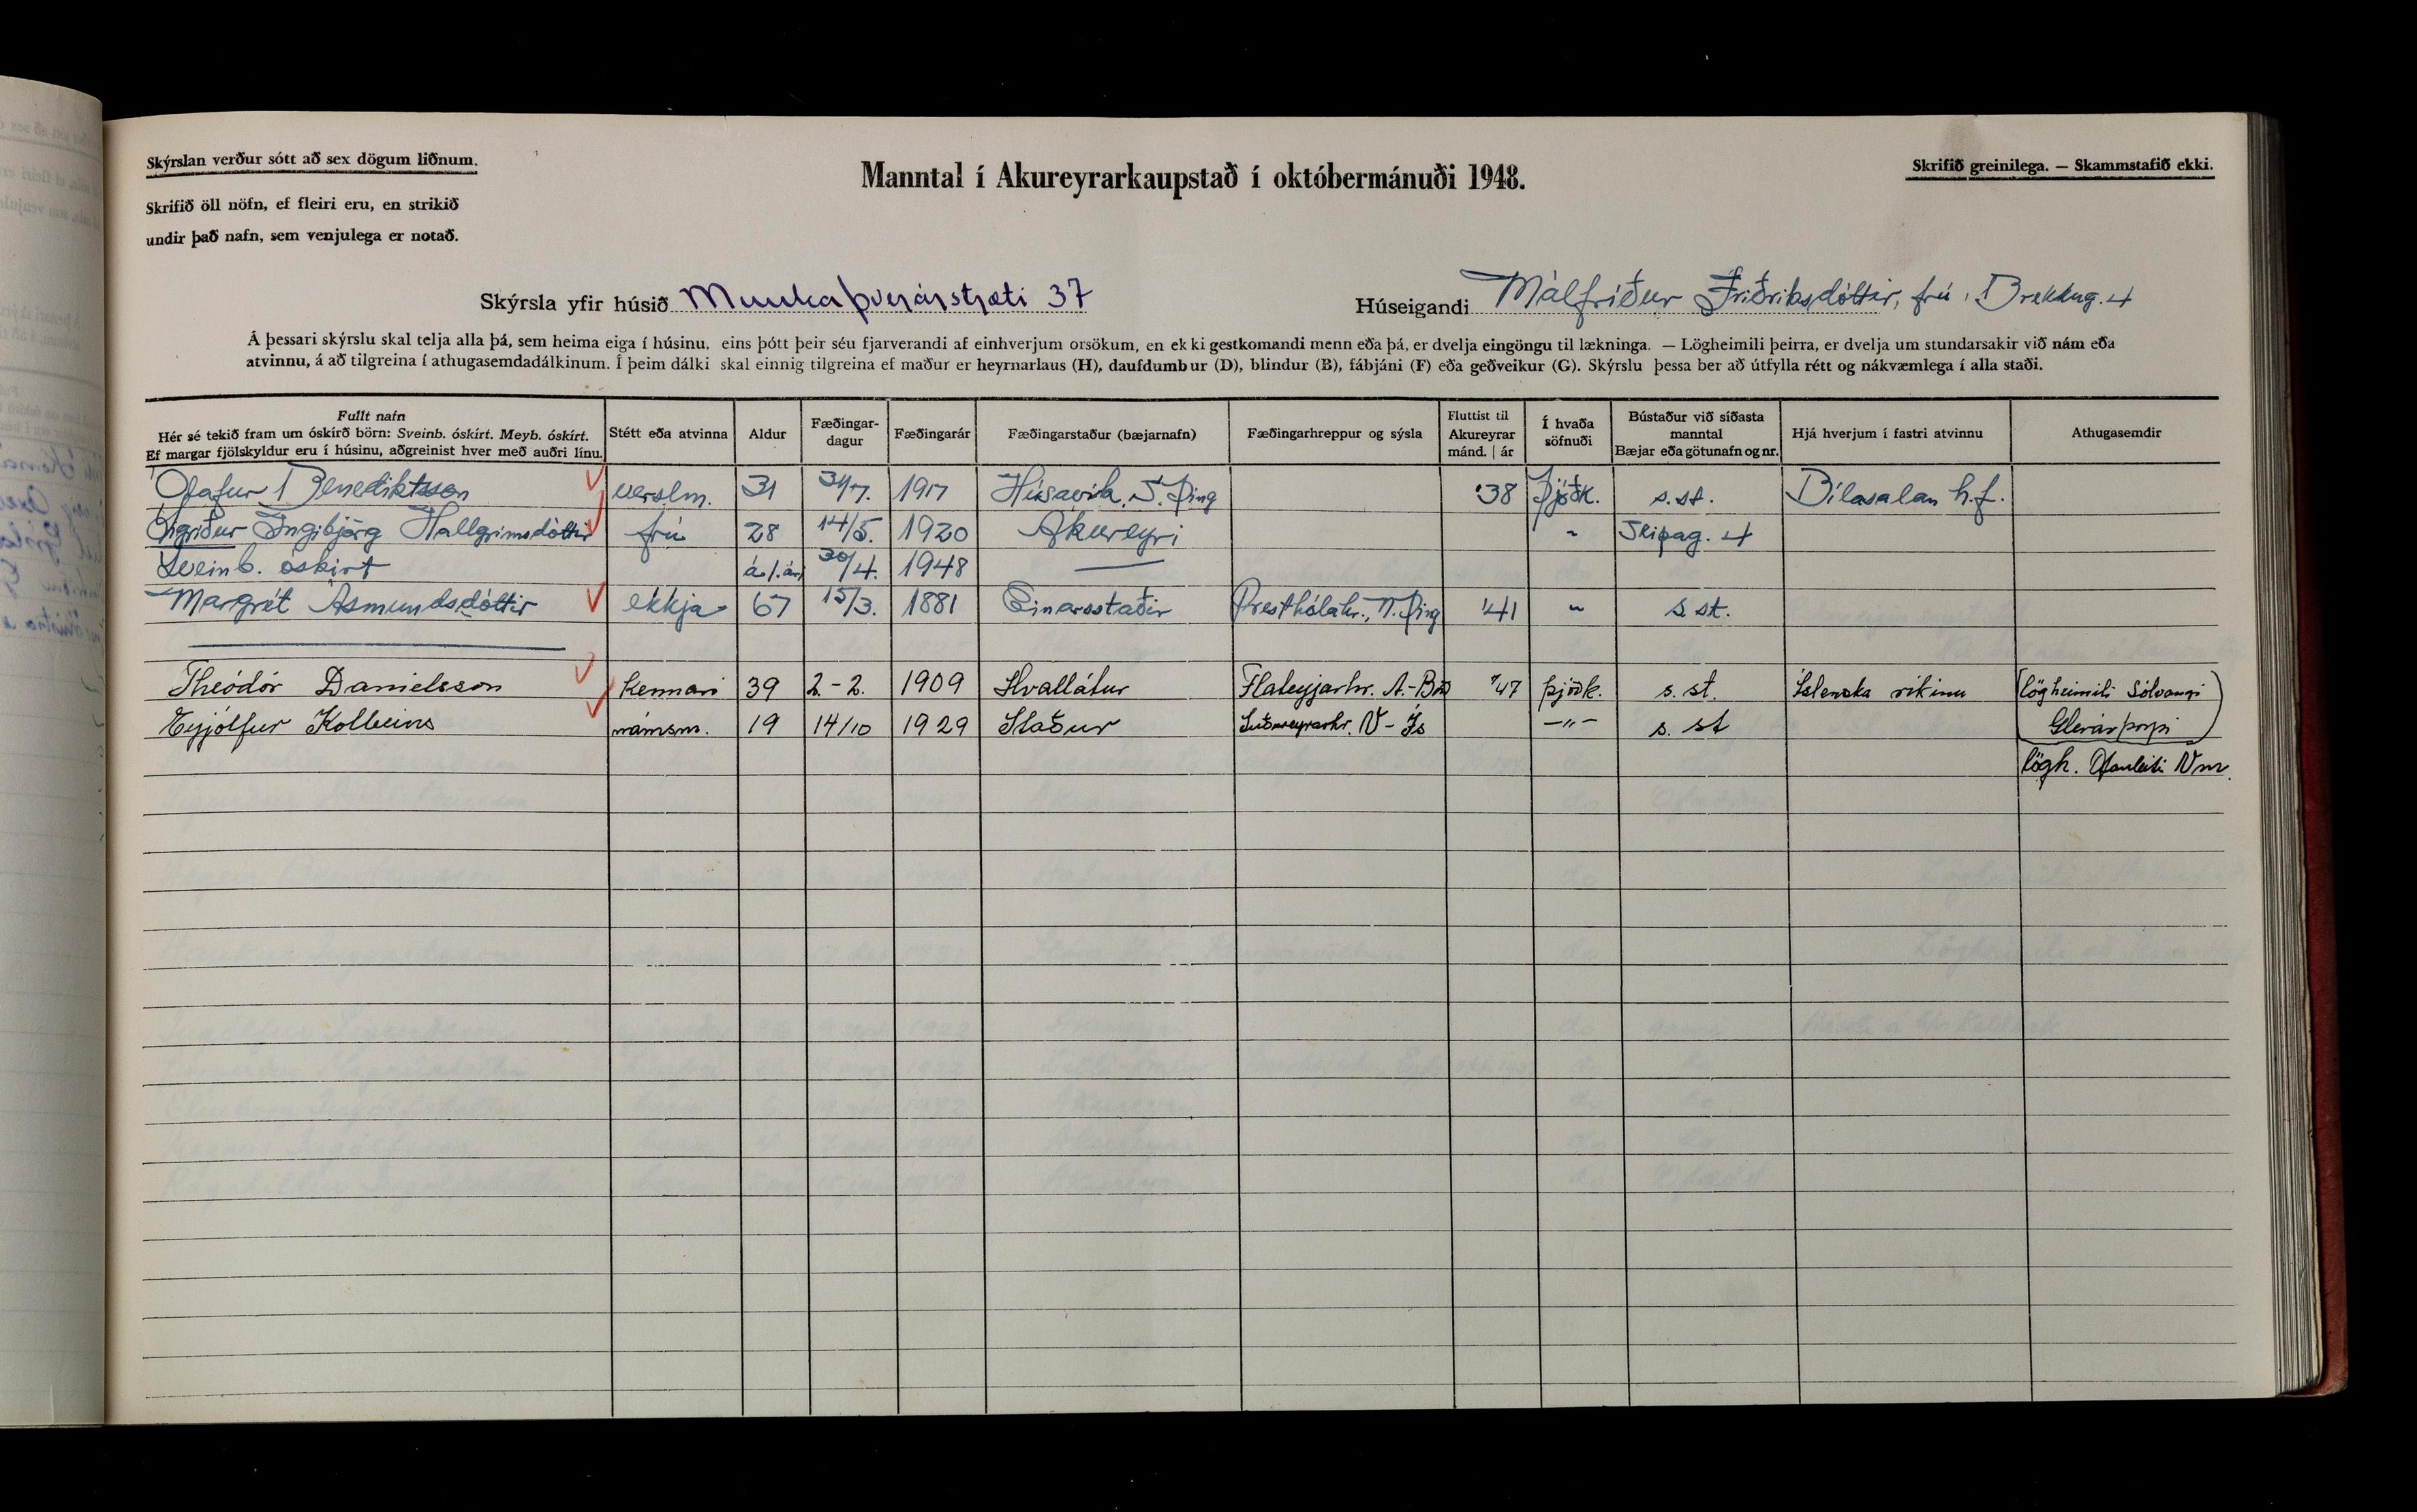 Skýrslan verður sótt að sex dögum liðnum.
Skrifið öll nöfn, ef fleiri eru, en strikið
undir það nafn, sem venjulega er notað.
Manntal í Akureyrarkaupstað í októbermánuði 1948.
Skrifið greinilega. — Skammstafið ekki.
Skýrsla yfir húsið Munkaþverárstræti 37
Húseigandi Málfríður Friðriksdóttir, frú, Brekkug. 4
Á þessari skýrslu skal telja alla þá, sem heima eiga í húsinu, eins þótt þeir séu fjarverandi af einhverjum orsökum, en ekki gestkomandi menn eða þá, er dvelja eingöngu til lækninga. — Lögheimili þeirra, er dvelja um stundarsakir við nám eða
atvinnu, á að tilgreina í athugasemdadálkinum. Í þeim dálki skal einnig tilgreina ef maður er heyrnarlaus (H), daufdumbur (D), blindur (B), fábjáni (F) eða geðveikur (G). Skýrslu þessa ber að útfylla rétt og nákvæmlega í alla staði.
Fullt nafn
Hér sé tekið fram um óskírð börn: Sveinb. óskírt. Meyb. óskírt.
Ef margar fjölskyldur eru í húsinu, aðgreinist hver með auðri línu.
Stétt eða atvinna
Aldur
Fæðingar-
dagur
Fæðingarár
Fæðingarstaður (bæjarnafn)
Fæðingarhreppur og sýsla
Fluttist til
Akureyrar
mánd. | ár
Í hvaða
söfnuði
Bústaður við síðasta
manntal
Bæjar eða götunafn og nr.
Hjá hverjum í fastri atvinnu
Athugasemdir
Ólafur Benediktsson verslm. 31 31/7. 1917 Húsavík, S. Þing '38 Þjóðk. s.st. Bílasalan h.f.
Ingríður Ingibjörg Hallgrímsdóttir frú 28 14/5. 1920 Akureyri " Skipag. 4
Sveinb. óskírt á 1. ári 30/4. 1948 —
Margrét Ásmundsdóttir ekkja 67 15/3. 1881 Einarsstaðir Presthólahr., N. Þing '41 " s. st.
Theódór Daníelsson kennari 39 2.-2. 1909 Hvallátur Flateyjarhr. A.-Barð '47 þjóðk. s. st. Íslenska ríkinu (lögheimili Sólvangi
Glerárþorpi)
Eyjólfur Kolbeins námsm. 19 14/10 1929 Staður Suðureyrarhr. V-Ís —"— s. st
lögh. Ofanleiti Vm.